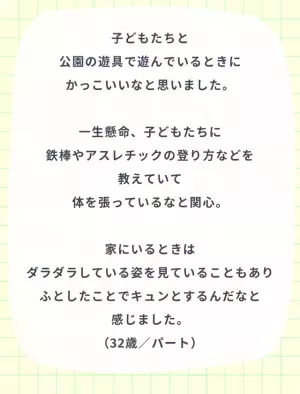 子どもたちと
公園の遊具で遊んでいるときに
かっこいいなと思いました。
一生懸命、子どもたちに
鉄棒やアスレチックの登り方などを
教えていて
体を張っているなと関心。
家にいるときは
ダラダラしている姿を見ていることもあり
ふとしたことでキュンとするんだなと
感じました。
（32歳／パート）